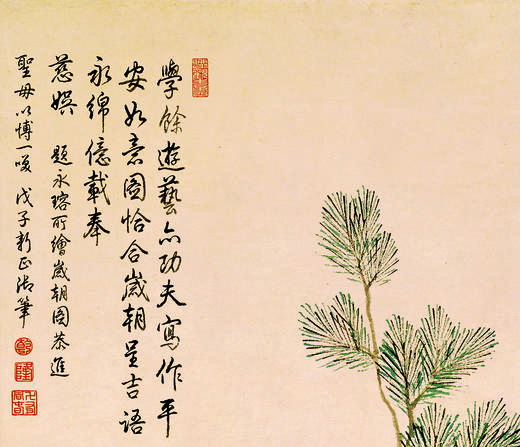 學餘遊藝亦功夫寫作平
安如意圖恰合歲朝呈吉語
永綿億載奉
慈娛 題永瑢所繪歲朝圖恭進
聖母以博一喚 戊子新正御筆